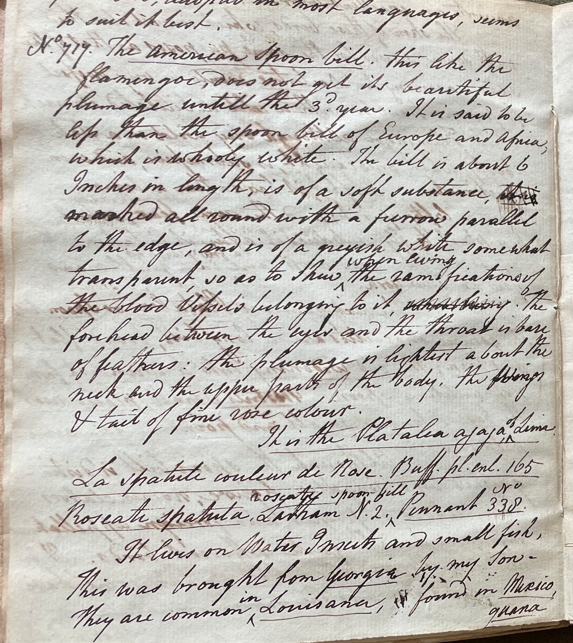 in most languages, seems
to suit it best.
No. 717. The american spoon bill. this like the
flamingoe, does not get its beautiful
plumage untill the 3d year. It is said to be
less than the spoon bill of Europe and Africa,
which is wholy white. The bill is about 6
Inches in length, is of a soft substance,
marked all round with a furrow parallel
to the edge, and is of a greyish white somewhat
transparent, so as to shew ^ when living the ramifications of
the blood Vessels belonging to it, the
forehead between the eyes and the throat is bare
of feathers: the plumage is lightest about the
neck and the upper parts of the body. the wings
& tail of fine rose colour.
It is the Platalea ajaja ^ of Linne.
La spatule couleur de Rose. Buff. pl. enl. 165
Roseate spatula. Latham N. 2, ^ roseate spoon bill Pennant No 338.
It lives on Water Insects and small fish,
This was brought from Georgia by my Son -
they are common ^ in Louisiana, found in Mexico,
guana